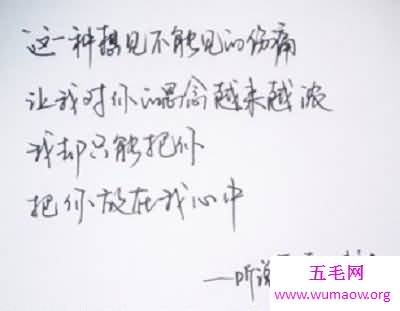 这一种想见不能见的伤痛
让我对你的思念越来越浓
我却只能把你
把你放在我心中
——听说
五毛网
www.wumaow.org